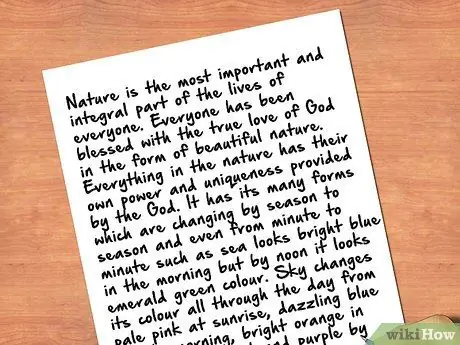 Nature is the most important and
integral part of the lives of
everyone. Everyone has been
blessed with the true love of God
in the form of beautiful nature.
Everything in the nature has their
own power and uniqueness provided
by the God. It has its many forms
which are changing by season to
season and even from minute to
minute such as sea looks bright blue
in the morning but by noon it looks
emerald green colour. Sky changes
its colour all through the day from
pale pink at sunrise, dazzling blue
morning, bright orange in
and purple by
wikiHow